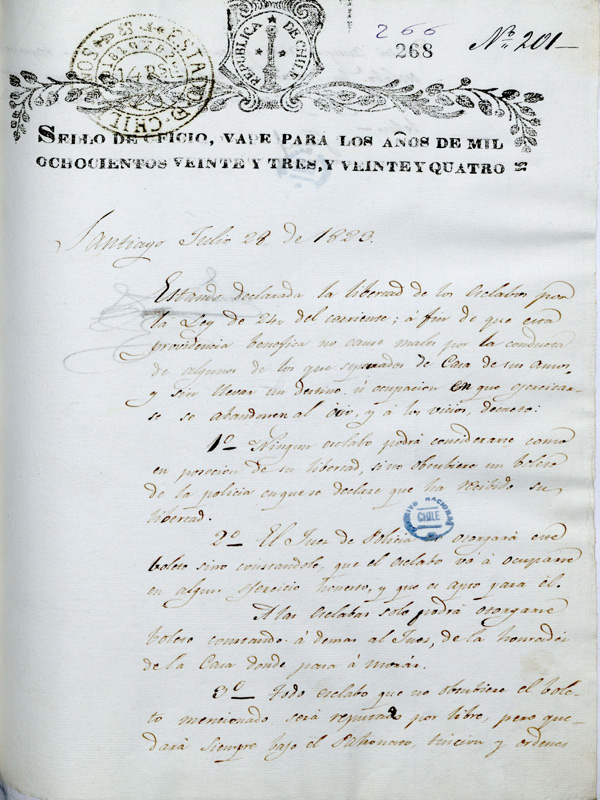 266
268
Nº 201
REPUBLICA DE CHILE
SELLO DE OFICIO, VALE PARA LOS AÑOS DE MIL
OCHOCIENTOS VEINTE Y TRES, Y VEINTE Y QUATRO
Santiago Julio 28 de 1823.
Estando declarada la libertad de los esclabos por
la Ley de 24 del corriente; á fin de que esta
providencia benefica no cause males por la conducta
de algunos de los que separados de Casa de sus amos,
y sin llevar un destino, ú ocupacion en que ejercitar-
se se abandonen al ocio, y á los vicios, decreto:
1º Ningun esclabo podrá considerarse como
en posecion de su libertad, sino obtubiere un boleto
de la policia en que se declare que ha recibido su
libertad.
2º El Juez de Policia otorgará este
boleto sino constandole, que el esclabo vá á ocuparse
en algun ejercicio honesto, y que es apto para él.
A las esclabas solo podrá otorgarse
boleto constando á demas al Juez, de la honradés
de la Casa donde pasa á morár.
ARCHIVO NACIONAL
CHILE
3º Todo esclabo que no obtubiere el bole-
to mencionado será reputado por libre, pero que-
dará siempre bajo el Patronato, tuicion y ordenes